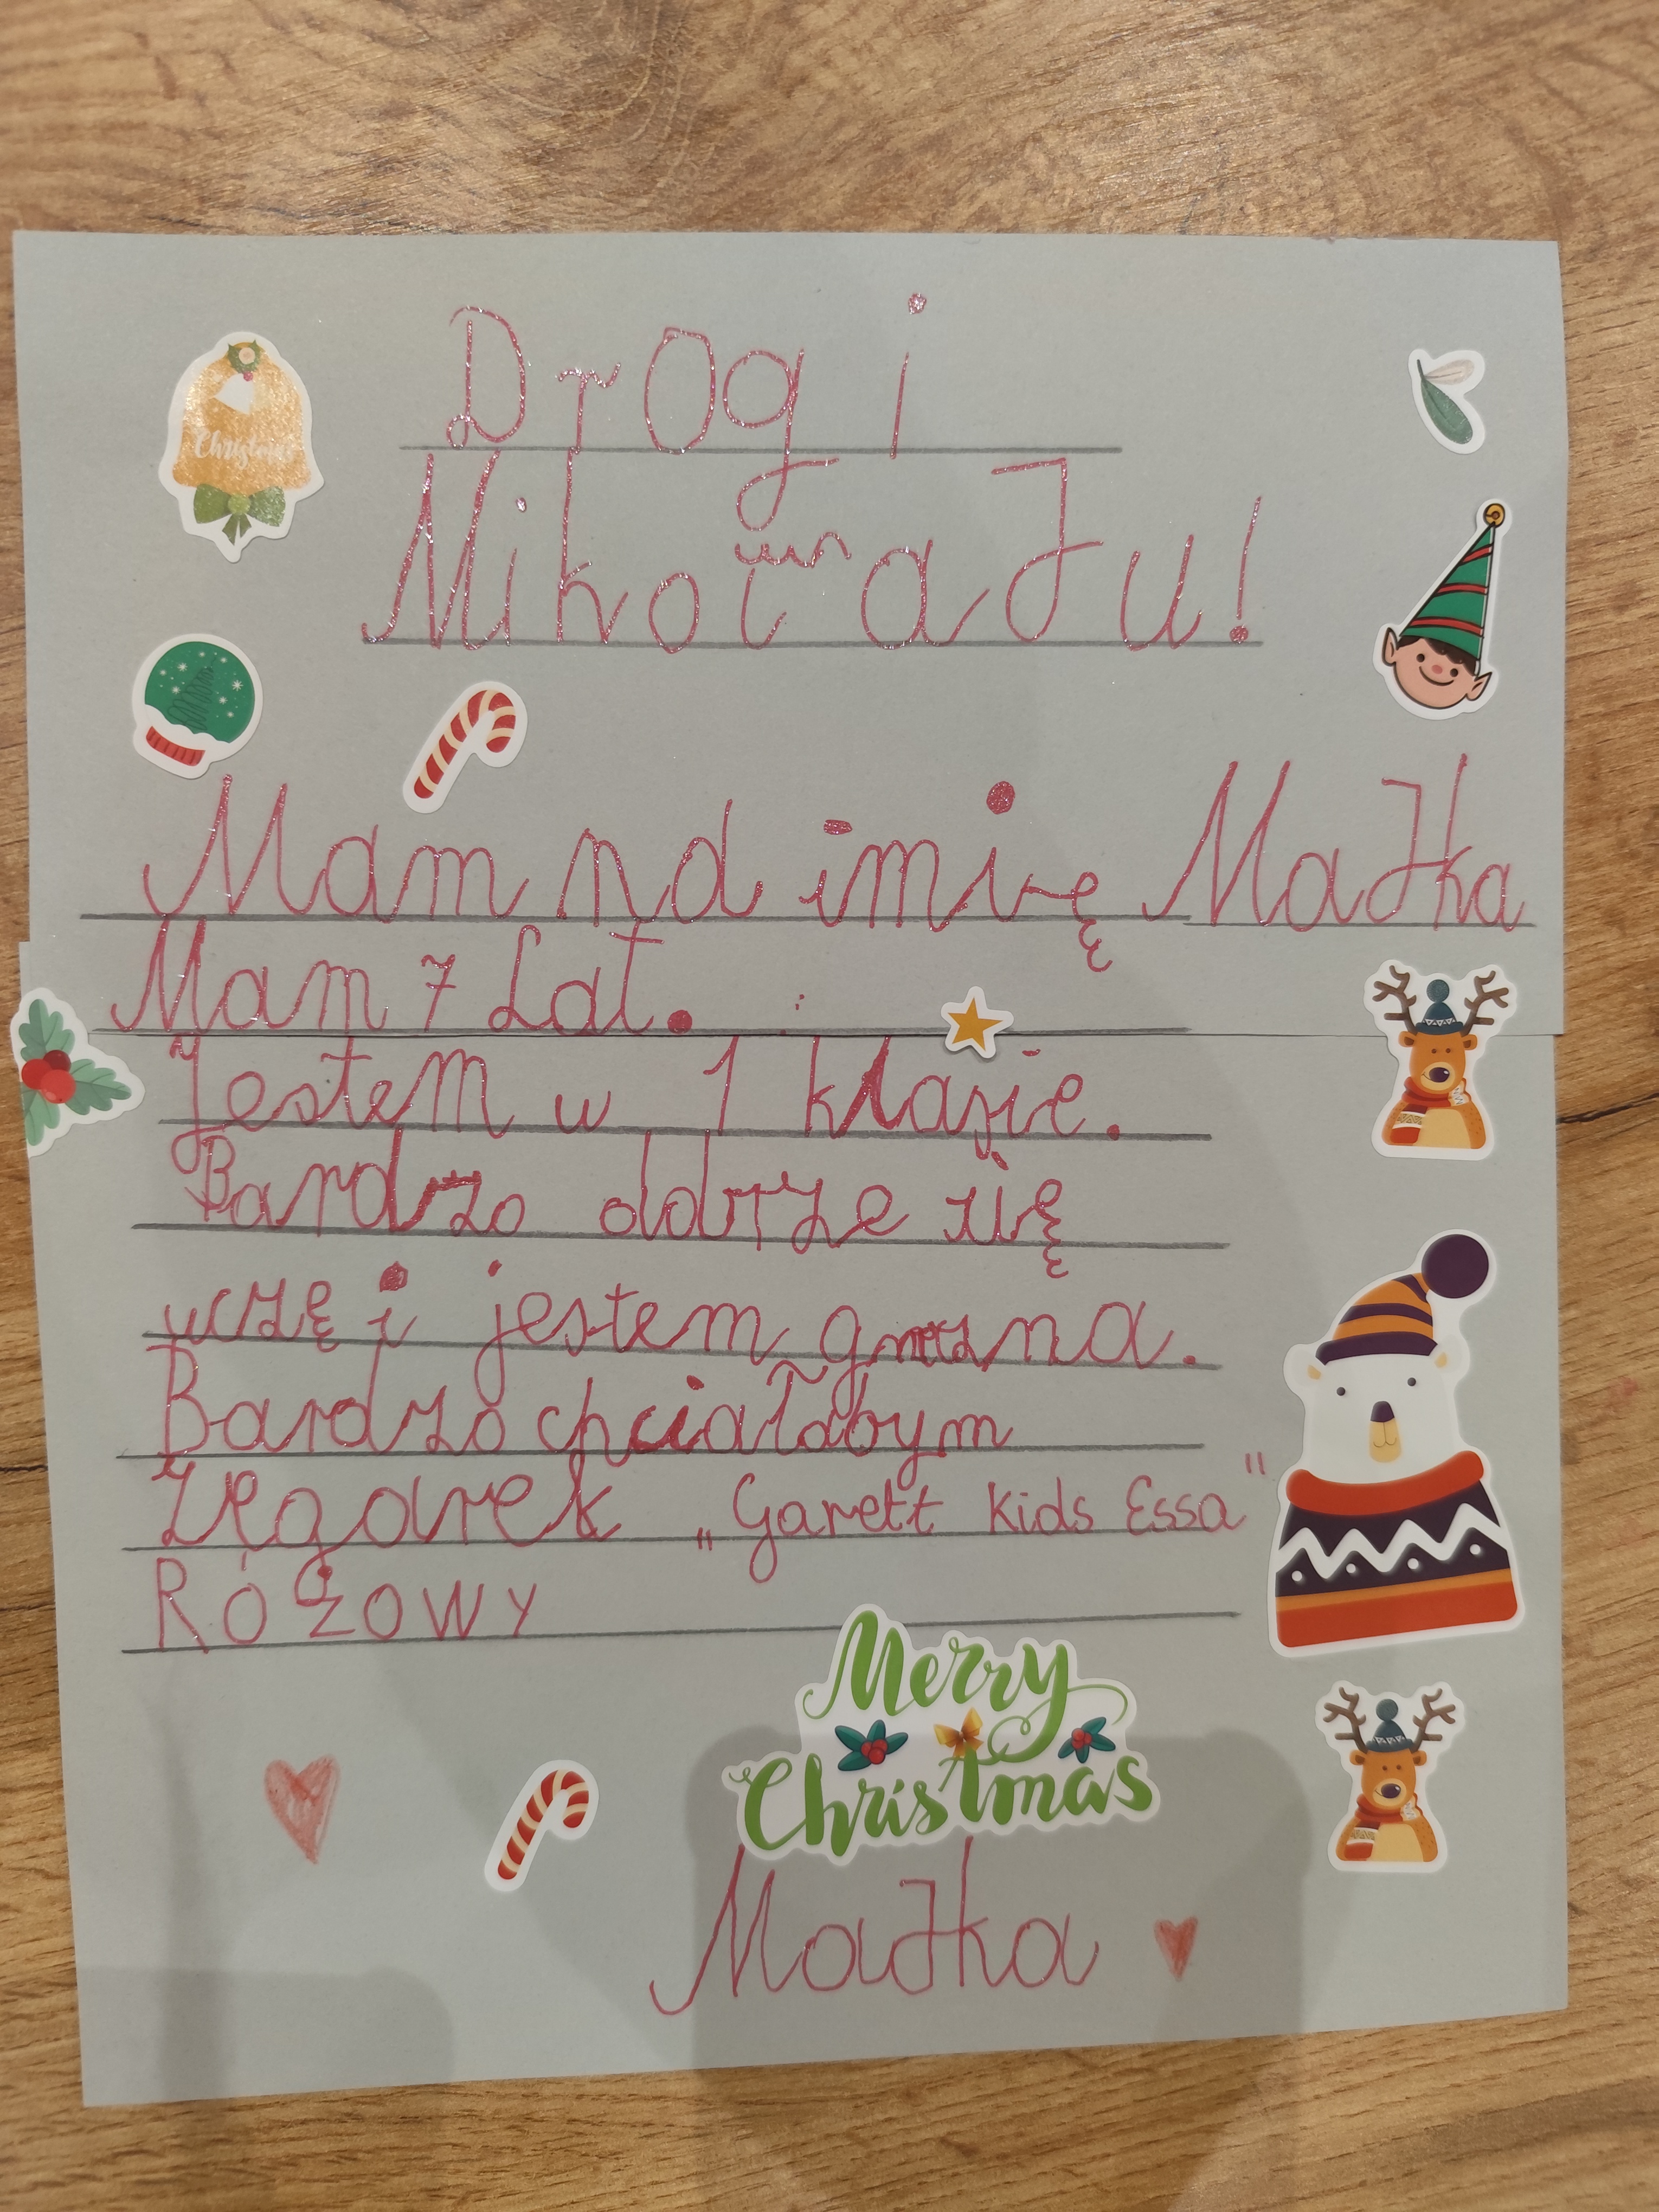 Christmas
Drogi
Mikołaju!
Mam na imię Majka
Mam 7 Lat.
Jestem w 1 klasie.
Bardzo dobrze się
uczę i jestem grzeczna.
Bardzo chciałabym
Zegarek „Garett Kids Essa"
RÓŻOWY
Merry
Christmas
Majka